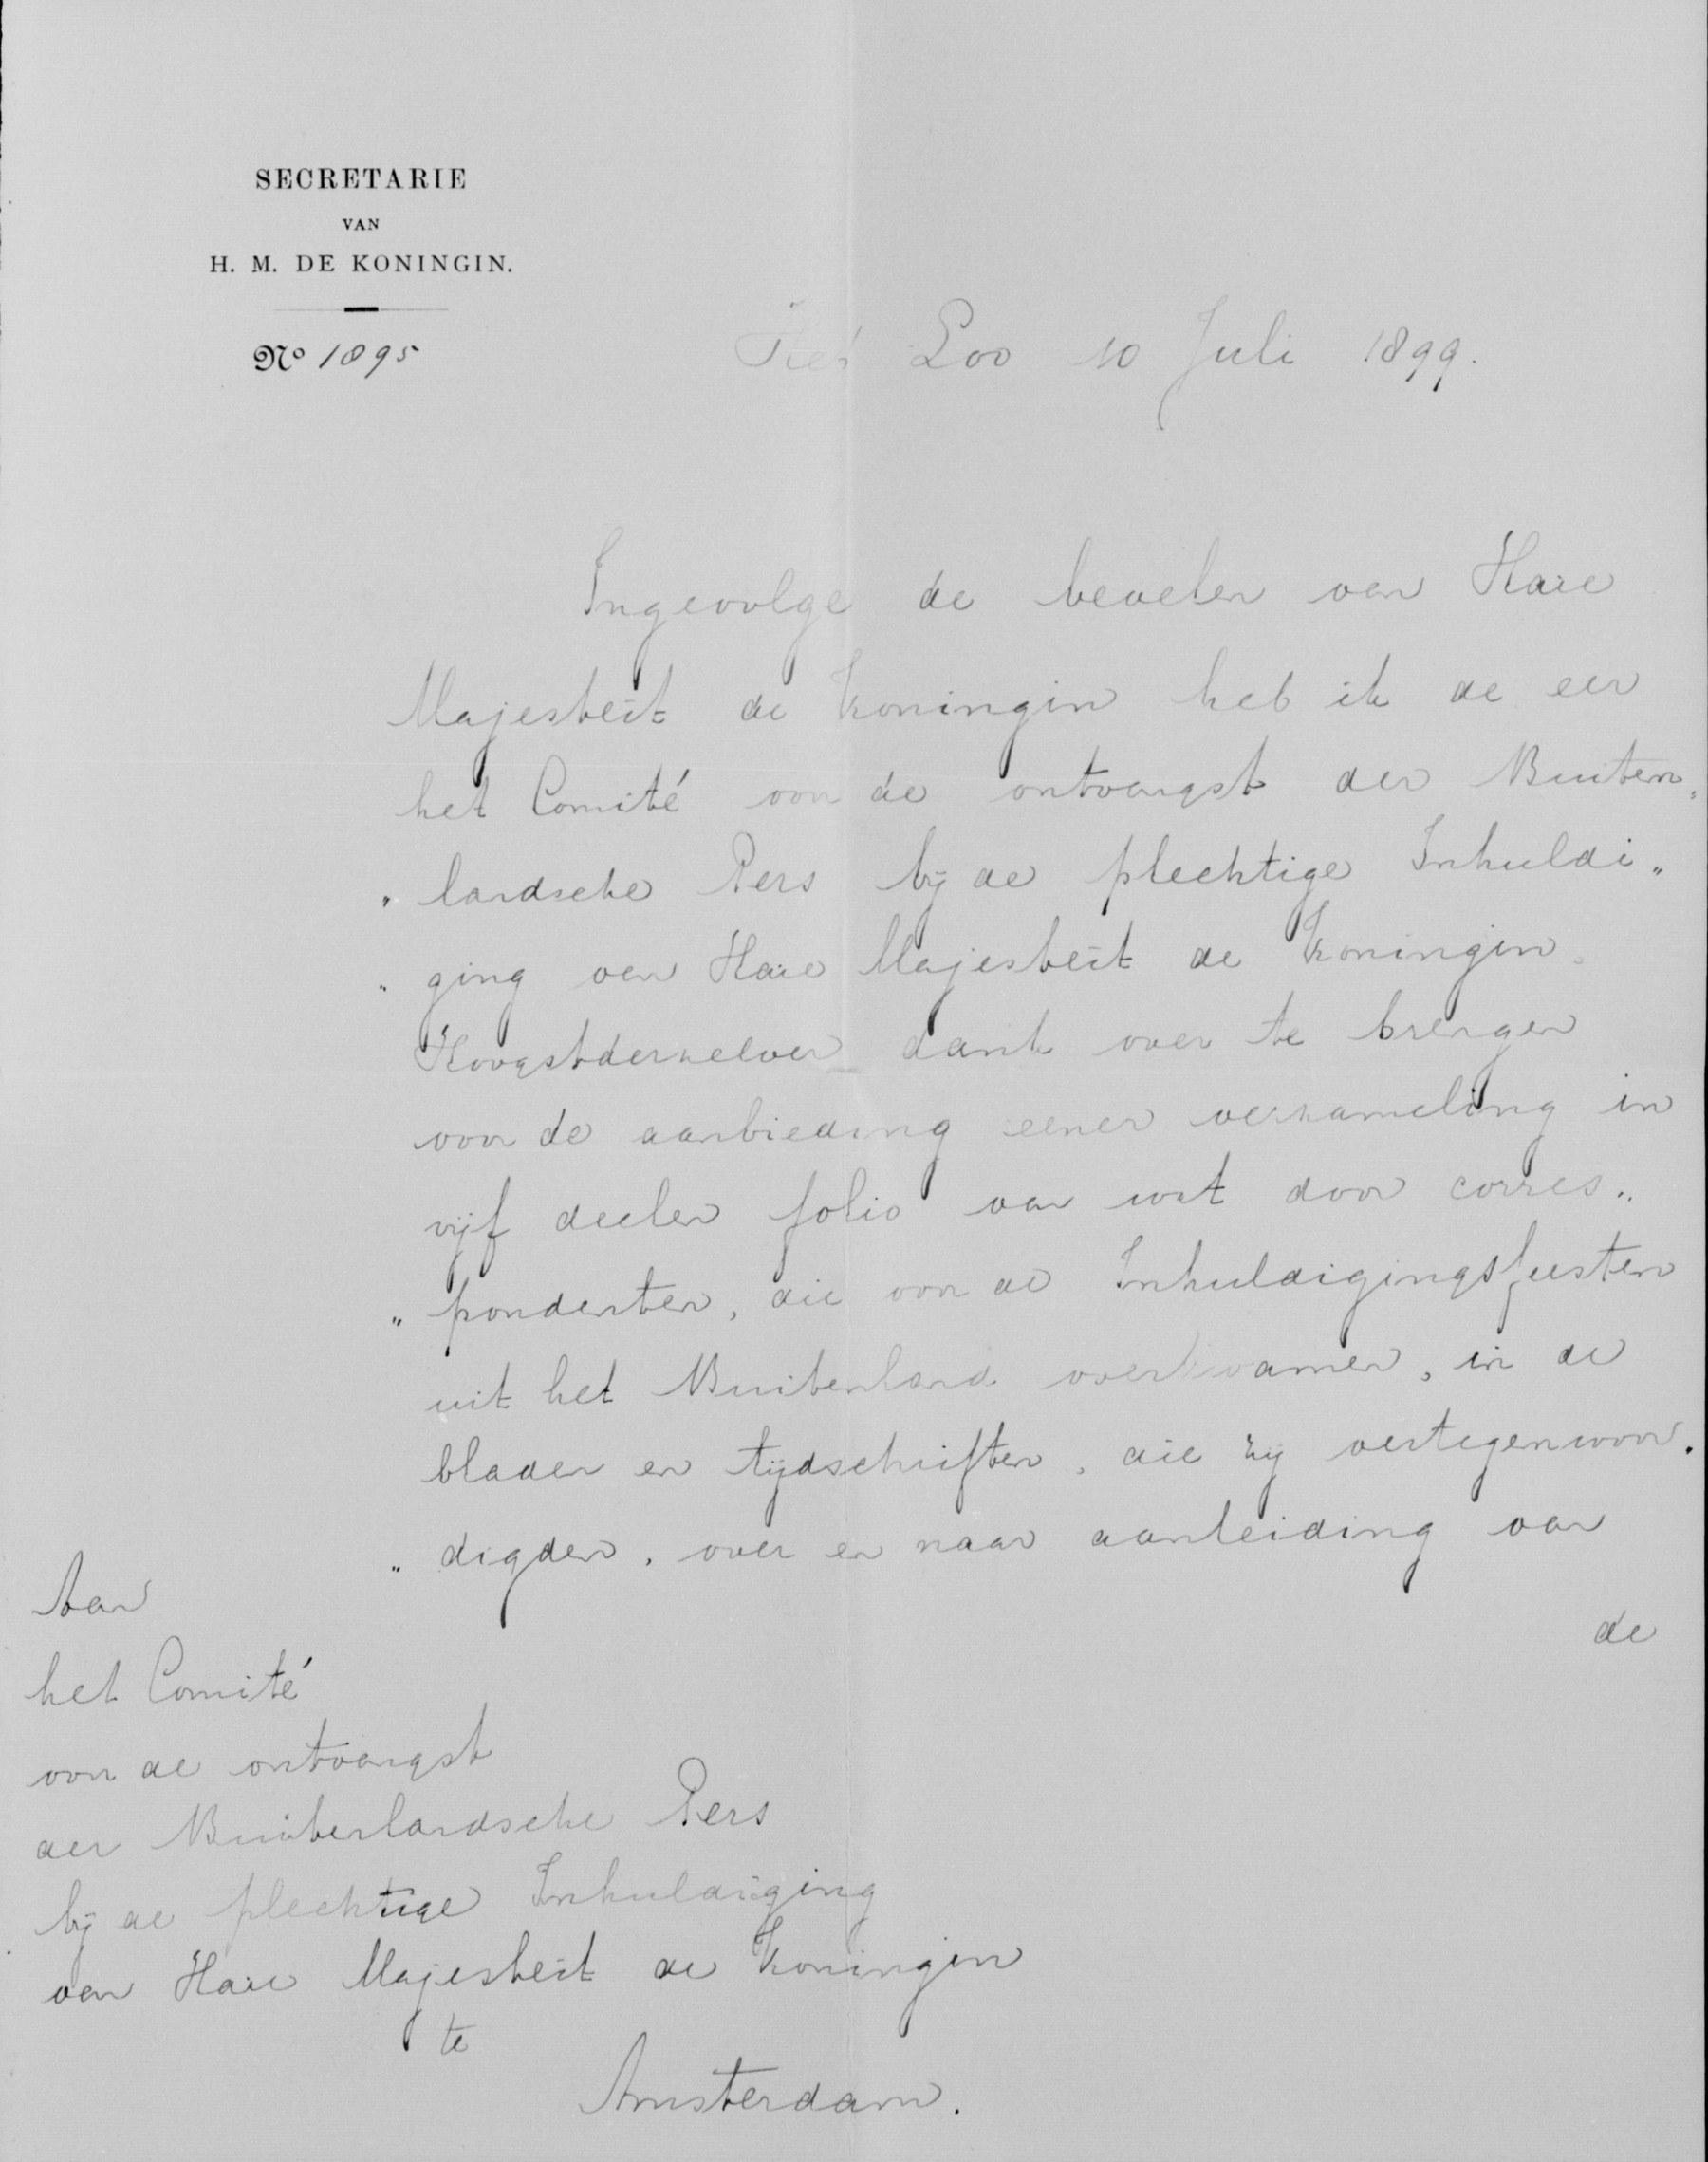 SECRETARIE
VAN
H. M. DE KONINGIN.
No 1895
Het Loo 10 Juli 1899.
Ingevolge de bevelen van Hare
Majesteit de Koningin heb ik de eer
het Comité voor de ontvangst der Buiten„
„landsche Pers bij de plechtige Inhuldi„
„ging van Hare Majesteit de Koningin
Hoogstderzelver dank over te brengen
voor de aanbieding eener verzameling in
vijf deelen folio van wat door corres„
„pondenten, die voor de Inhuldigingsfeesten
uit het Buitenland overkwamen, in de
bladen en tijdschriften, die zij vertegenwoor„
„digden, over en naar aanleiding van
de
Aan
het Comité
voor de ontvangst
der Buitenlandsche Pers
bij de plechtige Inhuldiging
van Hare Majesteit de Koningin
te
Amsterdam.